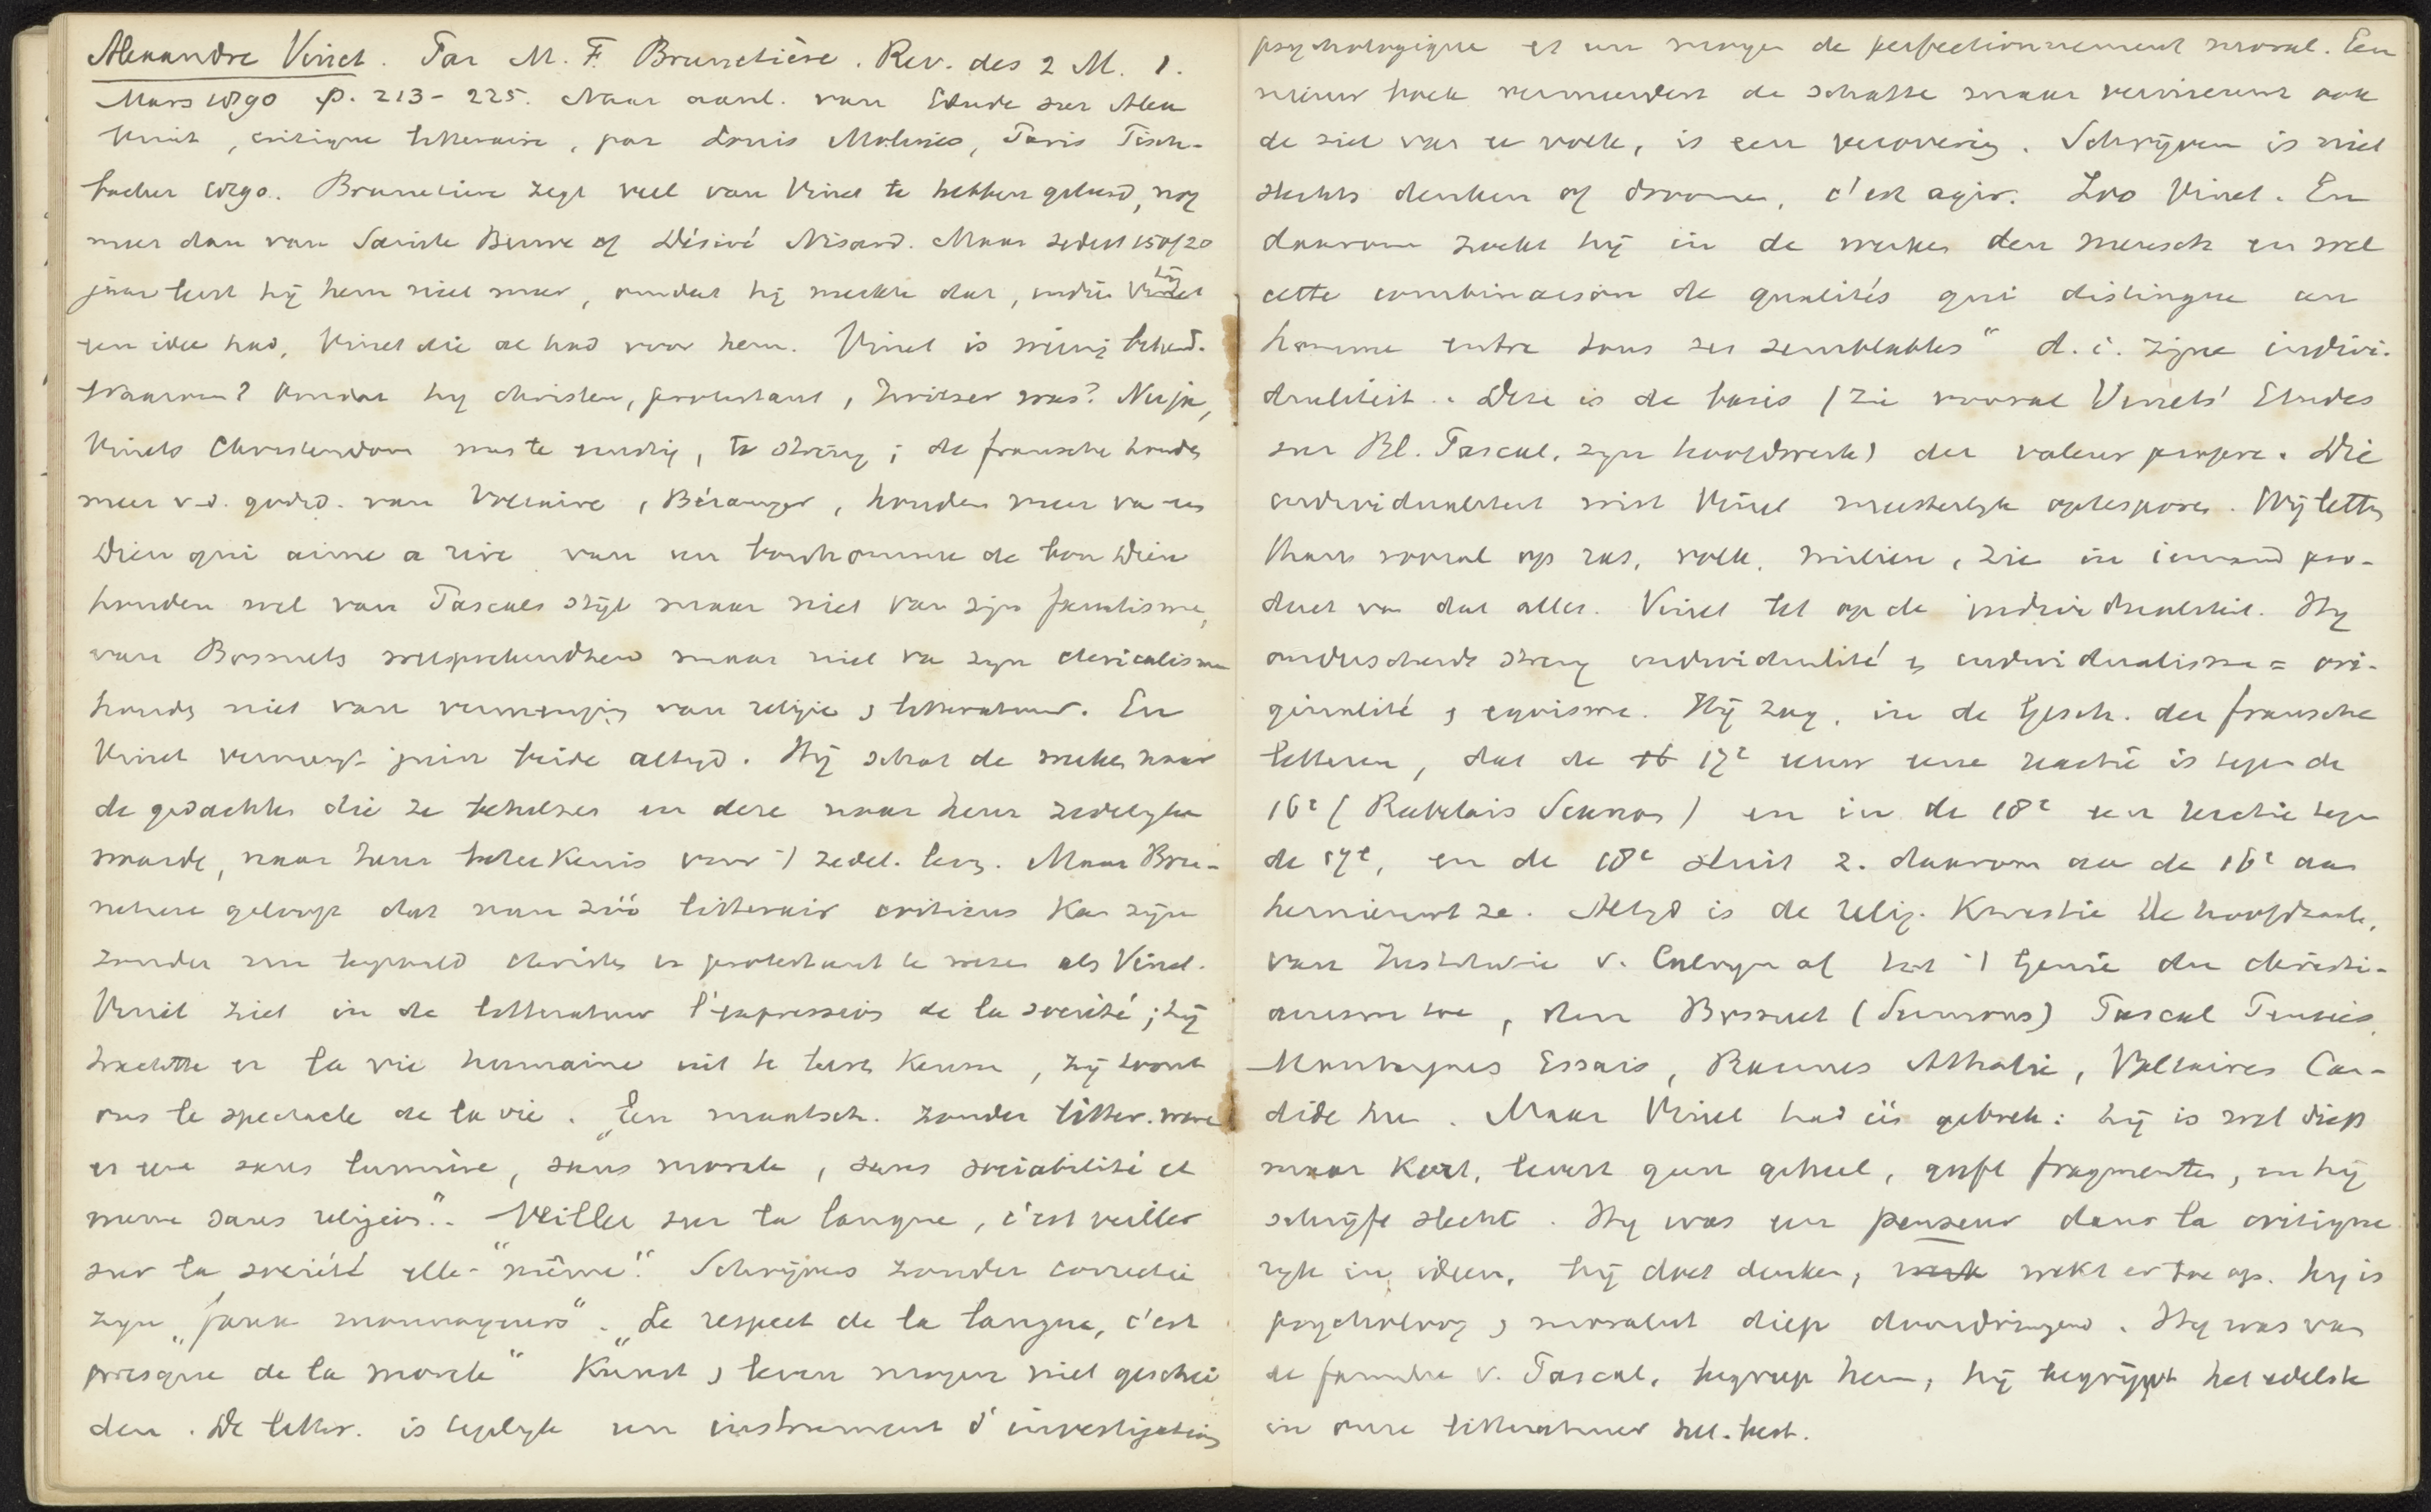 Alexandre Vinet. Par M. F. Brunetière. Rev. des 2 M. 1.
Mars 1890 p. 213-225. Naar aanl. van Etude sur Alex
Vinet, critique litteraire, par Louis Molines, Paris Fisch-
bacher 1890. Brunetiere zegt veel van Vinet te hebben geleerd, nog
meer dan van Sainte Beuve of Désiré Nisard. Maar sedert 15 of 20
jaar leest hij hem niet meer, omdat hij merkte dat, indien hij
een idee had, Vinet die al had voor hem. Vinet is weinig bekend.
Waarom? Omdat hy christen, protestant, Zwitser was? Neen ja,
Vinets Christendom was te ernstig, te streng; de fransche houden
meer v.d. godsd. van Voltaire, Béranger, houden meer van un
Dieu qui aime a rire van un bonhomme de bon Dieu
houden wel van Pascals stijl maar niet van zijn fanatisme,
van Bossuets welsprekendheid maar niet va zyn clericalisme
houden niet van vermenging van religie & litteratuur. En
Vinet vermengt juist beide altyd. Hij schat de werken naar
de gedachten die ze behelzen en deze naar hun zedelyke
waarde, naar hun beteekenis voor 't zedel. leven. Maar Bru-
netiere gelooft dat men zóó litterair criticus kan zijn
zonder een bepaald christen en protestant te wezen als Vinet.
Vinet ziet in de litteratuur l'expression de la société; hij
trachtte er la vie humaine uit te leeren kennen, zij toont
ons le spectacle de la vie. "Een maatsch. zonder litter. ware
er une sans lumière, sans morale, sans sociabilité et
meme sans religion". Veiller sur la langue, c'est veiller
sur la société elle-"même". Schrijvers zonder correctie
zyn "faux monnayeurs". "Le respect de la langue, c'est
presque de la morale" Kunst & leven mogen niet geschei
den. De litter. is tegelyk un instrument d'investigation
psychologique et un moyen de perfectionnement moral. Een
nieuw boek vermeerdert de schatten maar vernieuwt ook
de ziel van e volk, is een verovering. Schrijven is niet
slechts denken of droomen, c'est agir. Zoo Vinet. En
daarom zoekt hij in de werken den mensch en wel
cette combinaison de qualités qui distingue un
homme entre tous ses semblables" d.i. zijne indivi-
dualiteit. Deze is de basis (zie vooral Vinets' Etudes
sur Bl. Pascal, zyn hoofdwerk) der valeur propre. Die
individualiteit wist Vinet meesterlyk optesporen. Wij letten
thans vooral op ras, volk, milieu, zien in iemand pro-
duct van dat alles. Vinet let op de individualiteit. Hy
onderscheidt streng individualité & individualisme = ori-
ginalité & egoisme. Hij zag, in de Gesch. der fransche
letteren, dat de 17e eeuw eene reactie is tegen de
16e (Rabelais Scarron) en in de 18e een reactie tegen
de 17e, en de 18e sluit z. daarom aan de 16e aan
hernieuwt ze. Altyd is de relig. kwestie de hoofdzaak,
van Institutie v. Calvyn af tot 't Genie du christi-
anisme toe, den Bossuet (Sermons) Pascal Pensées,
Montaignes Essais, Racines Athalie, Voltaires Can-
dide toe. Maar Vinet had één gebrek: hij is wel diep
maar kort, levert geen geheel, geeft fragmenten, en hij
schrijft slecht. Hy was un penseur dans la critique
ryk in ideen, hij doet denken, wekt er toe op. Hy is
psycholoog & moralist diep doordringend. Hy was van
de familie v. Pascal, begreep hem, hij begrijpt het edelste
in onze litteratuur het best.